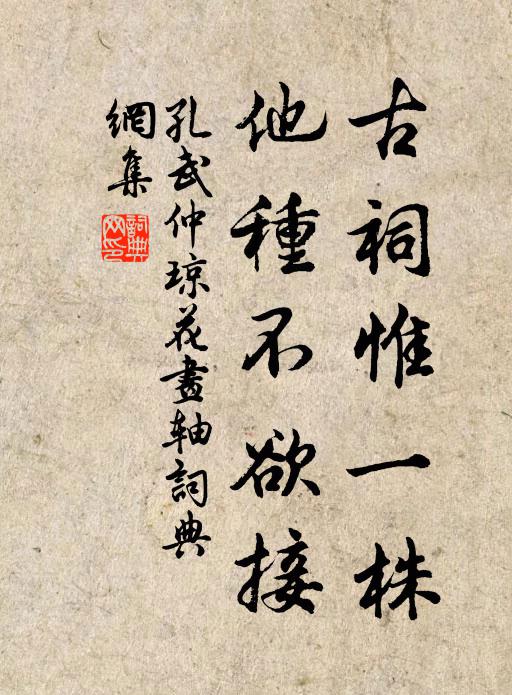 古祠惟一株
他種不欲接
孔武仲琼花畫軸詞典
網集
詞典
网印